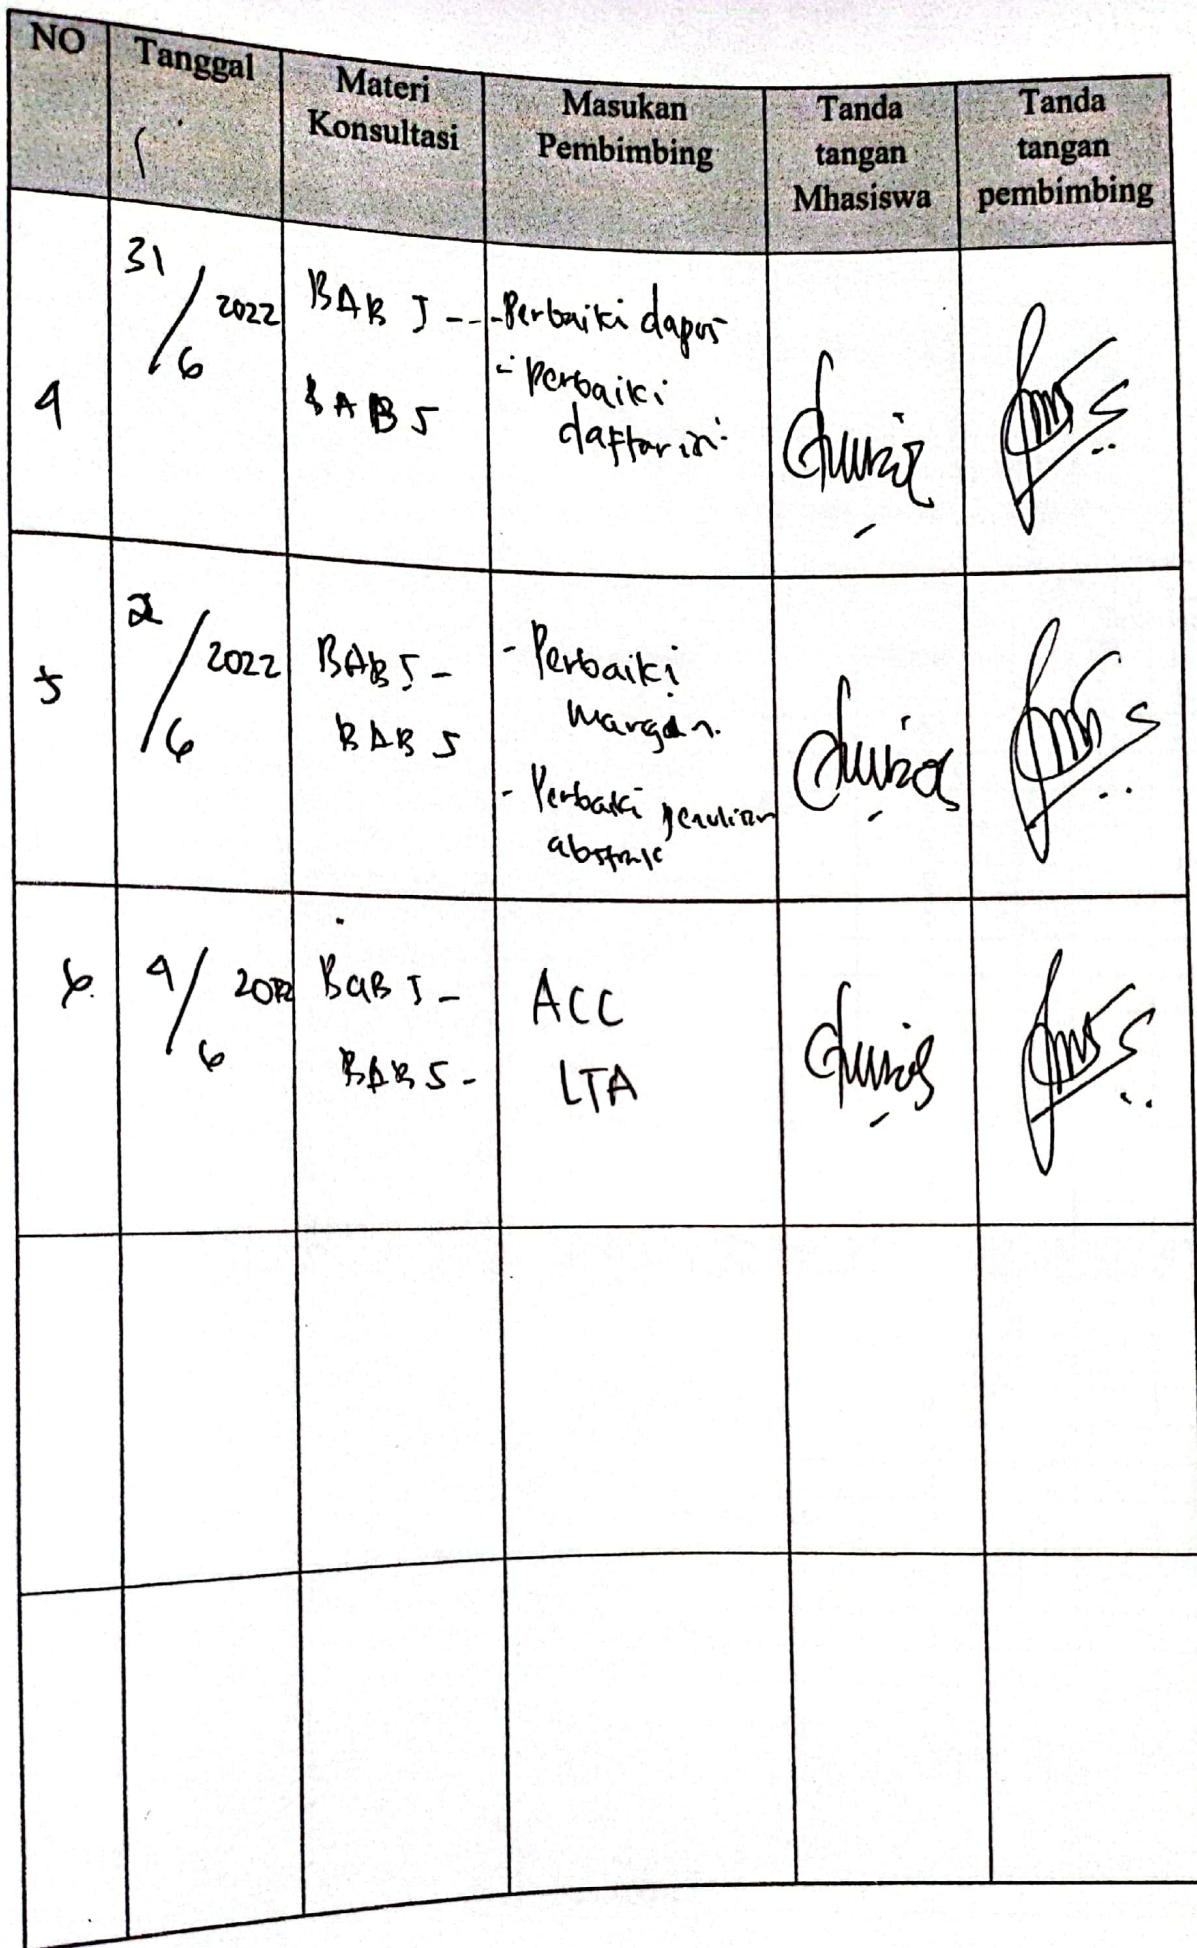 NO
Tanggal
Materi
Konsultasi
Masukan
Pembimbing
Tanda
tangan
Mhasiswa
Tanda
tangan
pembimbing
4
31/6 2022
BAB I -
BAB 5
- Perbaiki dapus
- Perbaiki
daftar isi
5
2/6 2022
BAB I -
BAB 5
- Perbaiki
margin
- Perbaiki penulisan
abstrak
6.
4/6 2022
BAB I -
BAB 5 -
ACC
LTA